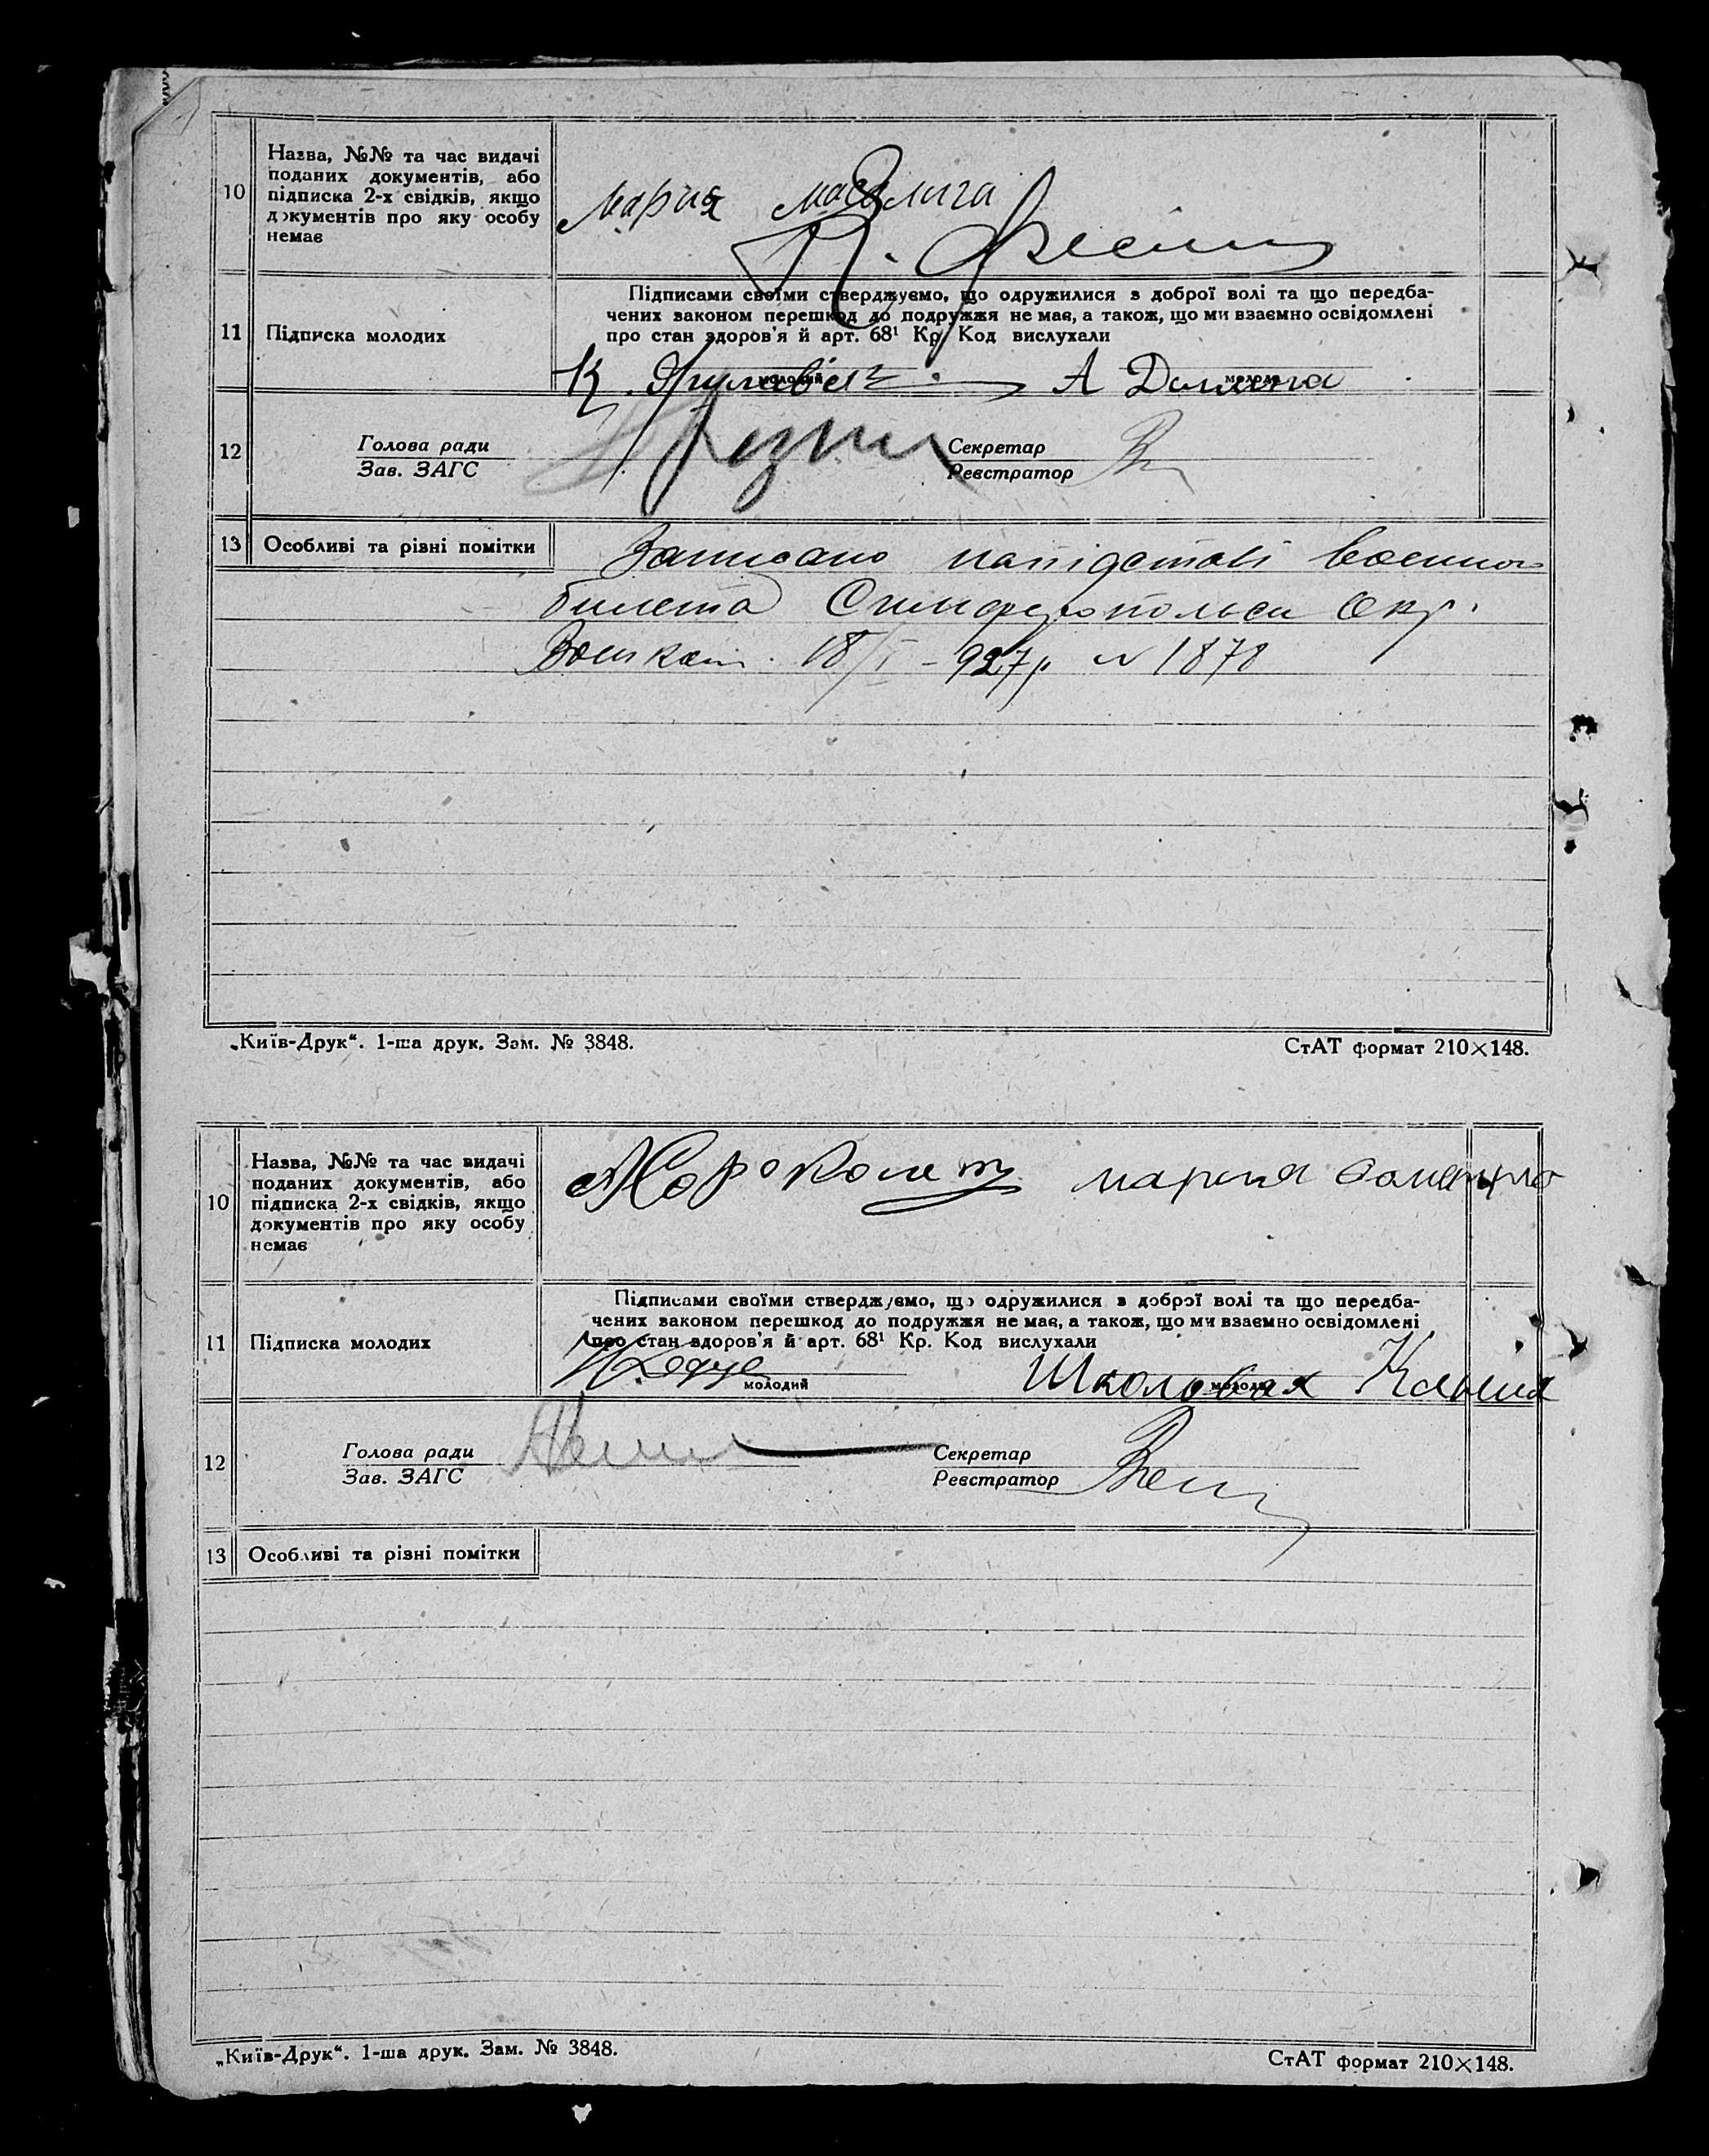 10
Назва, №№ та час видачі
поданих документів, або
підписка 2-х свідків, якщо
документів про яку особу
немає
Мария
11
Підписка молодих
Підписами своїми стверджуємо, що одружилися з доброї волі та що передба-
чених законом перешкод до подружжя не має, а також, що ми взаємно освідомлені
про стан здоров'я й арт. 68¹ Кр. Код вислухали
К.
молодий
А Долина
молода
12
Голова ради
Зав. ЗАГС
Секретар
Реєстратор
13
Особливі та рівні помітки
Записано напідставі военного
билета Симферопольск Окр.
Военком. 18/I – 927р № 1878
„Київ-Друк“. 1-ша друк. Зам. № 3848.
СтАТ формат 210×148.
10
Назва, №№ та час видачі
поданих документів, або
підписка 2-х свідків, якщо
документів про яку особу
немає
мария
11
Підписка молодих
Підписами своїми стверджуємо, що одружилися з доброї волі та що передба-
чених законом перешкод до подружжя не має, а також, що ми взаємно освідомлені
про стан здоров'я й арт. 68¹ Кр. Код вислухали
молодий
Школовая
молода
12
Голова ради
Зав. ЗАГС
Секретар
Реєстратор
13
Особливі та рівні помітки
„Київ-Друк“. 1-ша друк. Зам. № 3848.
СтАТ формат 210×148.